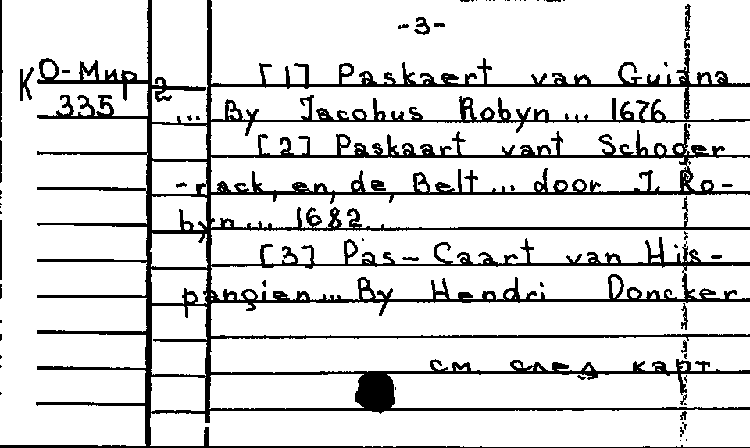 -3-
К О-Мир
335
2
[1] Paskaert van Guiana
... By Jacobus Robyn ... 1676
[2] Paskaart vant Schoder
-rack, en, de, Belt ... door J. Ro-
byn ... 1682.
[3] Pas-Caart van His-
pangien ... By Hendri Doncker
см. след карт.